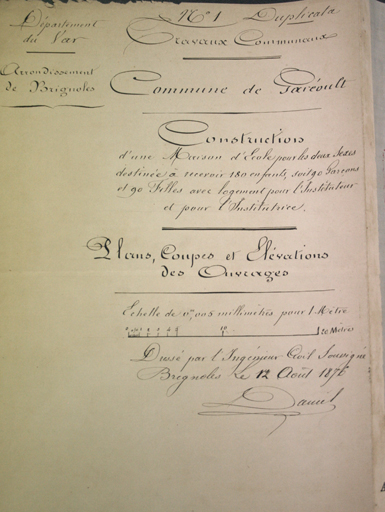 Département
du Var
Arrondissement
de Brignoles
N° 1 Duplicata
Travaux Communaux
Commune de Garéoult
Construction
d'une Maison d'École pour les deux Sexes
destinée à recevoir 180 enfants, soit 90 Garçons
et 90 Filles avec logement pour l'Instituteur
et pour l'Institutrice.
Plans, Coupes et Élévations
des Ouvrages
Echelle de 0m,005 millimètres pour 1 Mètre
10 20 Mètres
Dressé par l'Ingénieur Civil Soussigné
Brignoles le 12 Août 187
Daniel